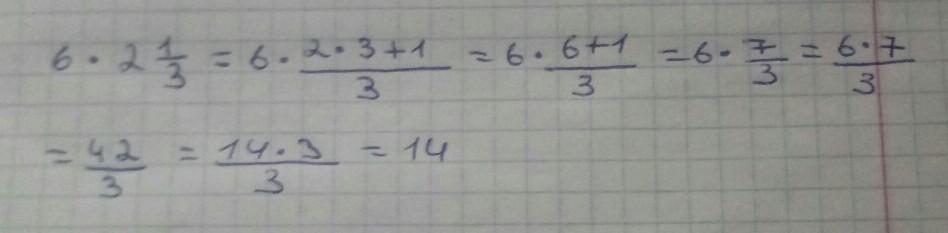 6 · 2 1/3 = 6 · (2·3+1)/3 = 6 · (6+1)/3 = 6 · 7/3 = (6·7)/3
= 42/3 = (14·3)/3 = 14